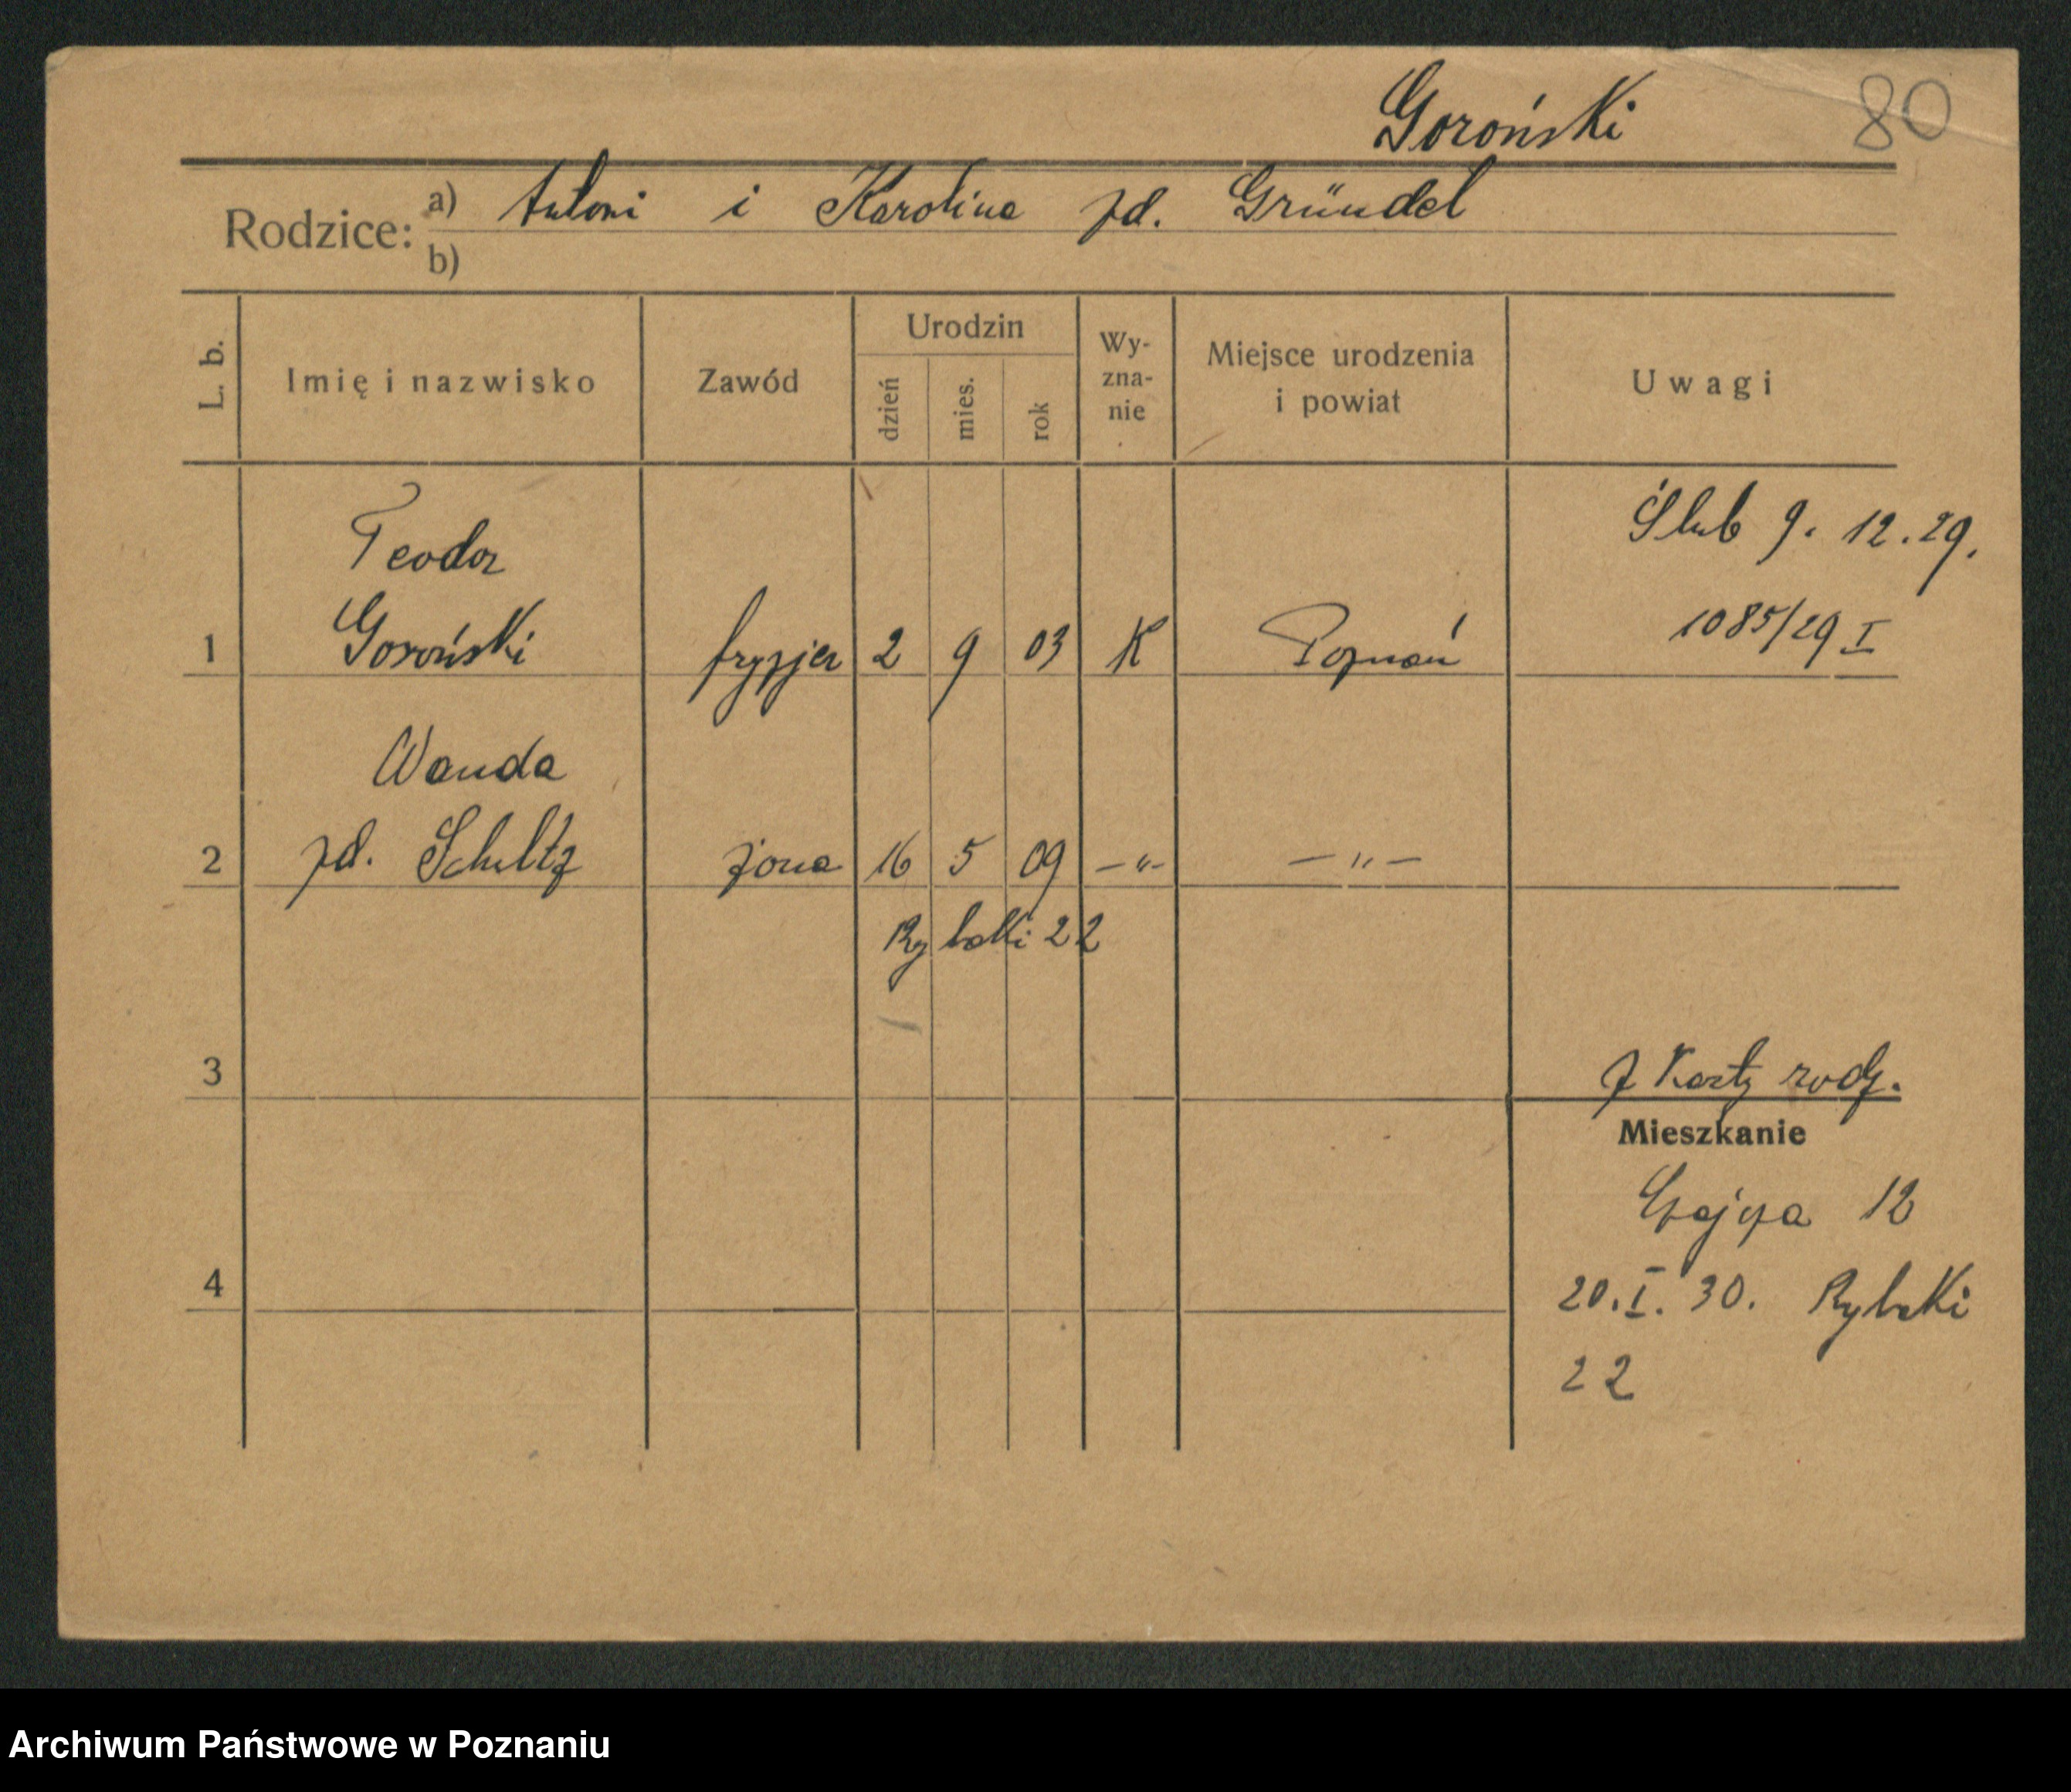 Goroński 80
Rodzice: a) Antoni i Karolina zd. Gründel
b)
L. b. Imię i nazwisko Zawód Urodzin dzień mies. rok Wy-zna-nie Miejsce urodzenia i powiat Uwagi
Teodor Ślub 9. 12. 29.
1 Goroński fryzjer 2 9 03 K Poznań 1085/29 I
Wanda
2 zd. Schultz żona 16 5 09 —"— —"—
Rybaki 22
3 z Karty rodz.
Mieszkanie
12
4 20. I. 30. Rybaki
22
Archiwum Państwowe w Poznaniu